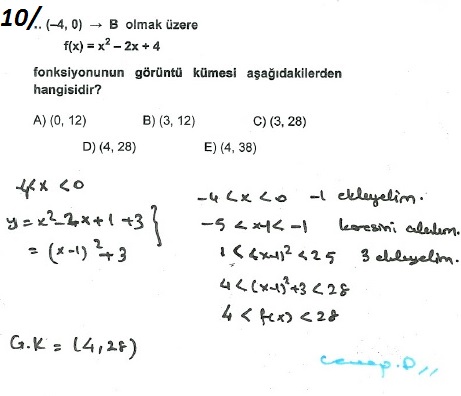 10/.. (–4, 0) → B olmak üzere
f(x) = x² – 2x + 4
fonksiyonunun görüntü kümesi aşağıdakilerden
hangisidir?
A) (0, 12) B) (3, 12) C) (3, 28)
D) (4, 28) E) (4, 38)
-4<x<0
y = x²-2x+1+3
= (x-1)²+3
G.K = (4,28)
-4<x<0 -1 ekleyelim.
-5<x-1<-1 karesini alalım.
1<(x-1)²<25 3 ekleyelim.
4<(x-1)²+3<28
4<f(x)<28
cevap.D,,